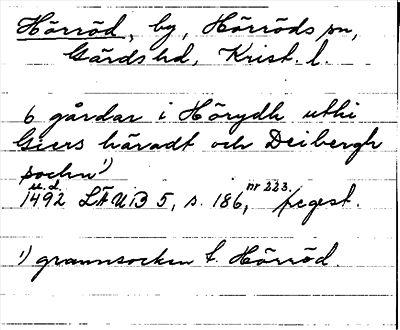 Hörröd, by, Hörröds sn,
Gärds hd, Krist. l.
6 gårdar i Hörydh uthi
Giers häradt och Deibergh
sochn¹)
u.d.
1492 LÄUB 5, s. 186, nr 223. regest.
¹) grannsocken t. Hörröd.